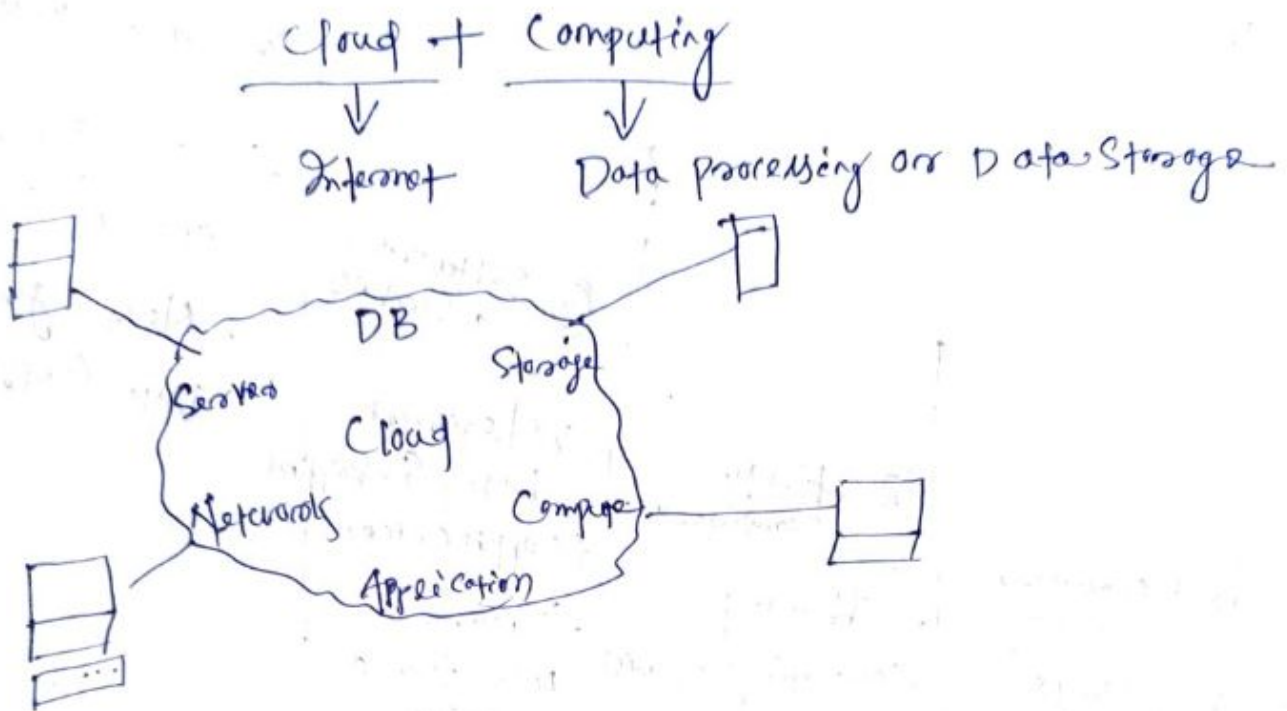 Cloud + Computing
Internet Data processing or Data Storage
DB
Storage
Server
Cloud
Networks
Compute
Application